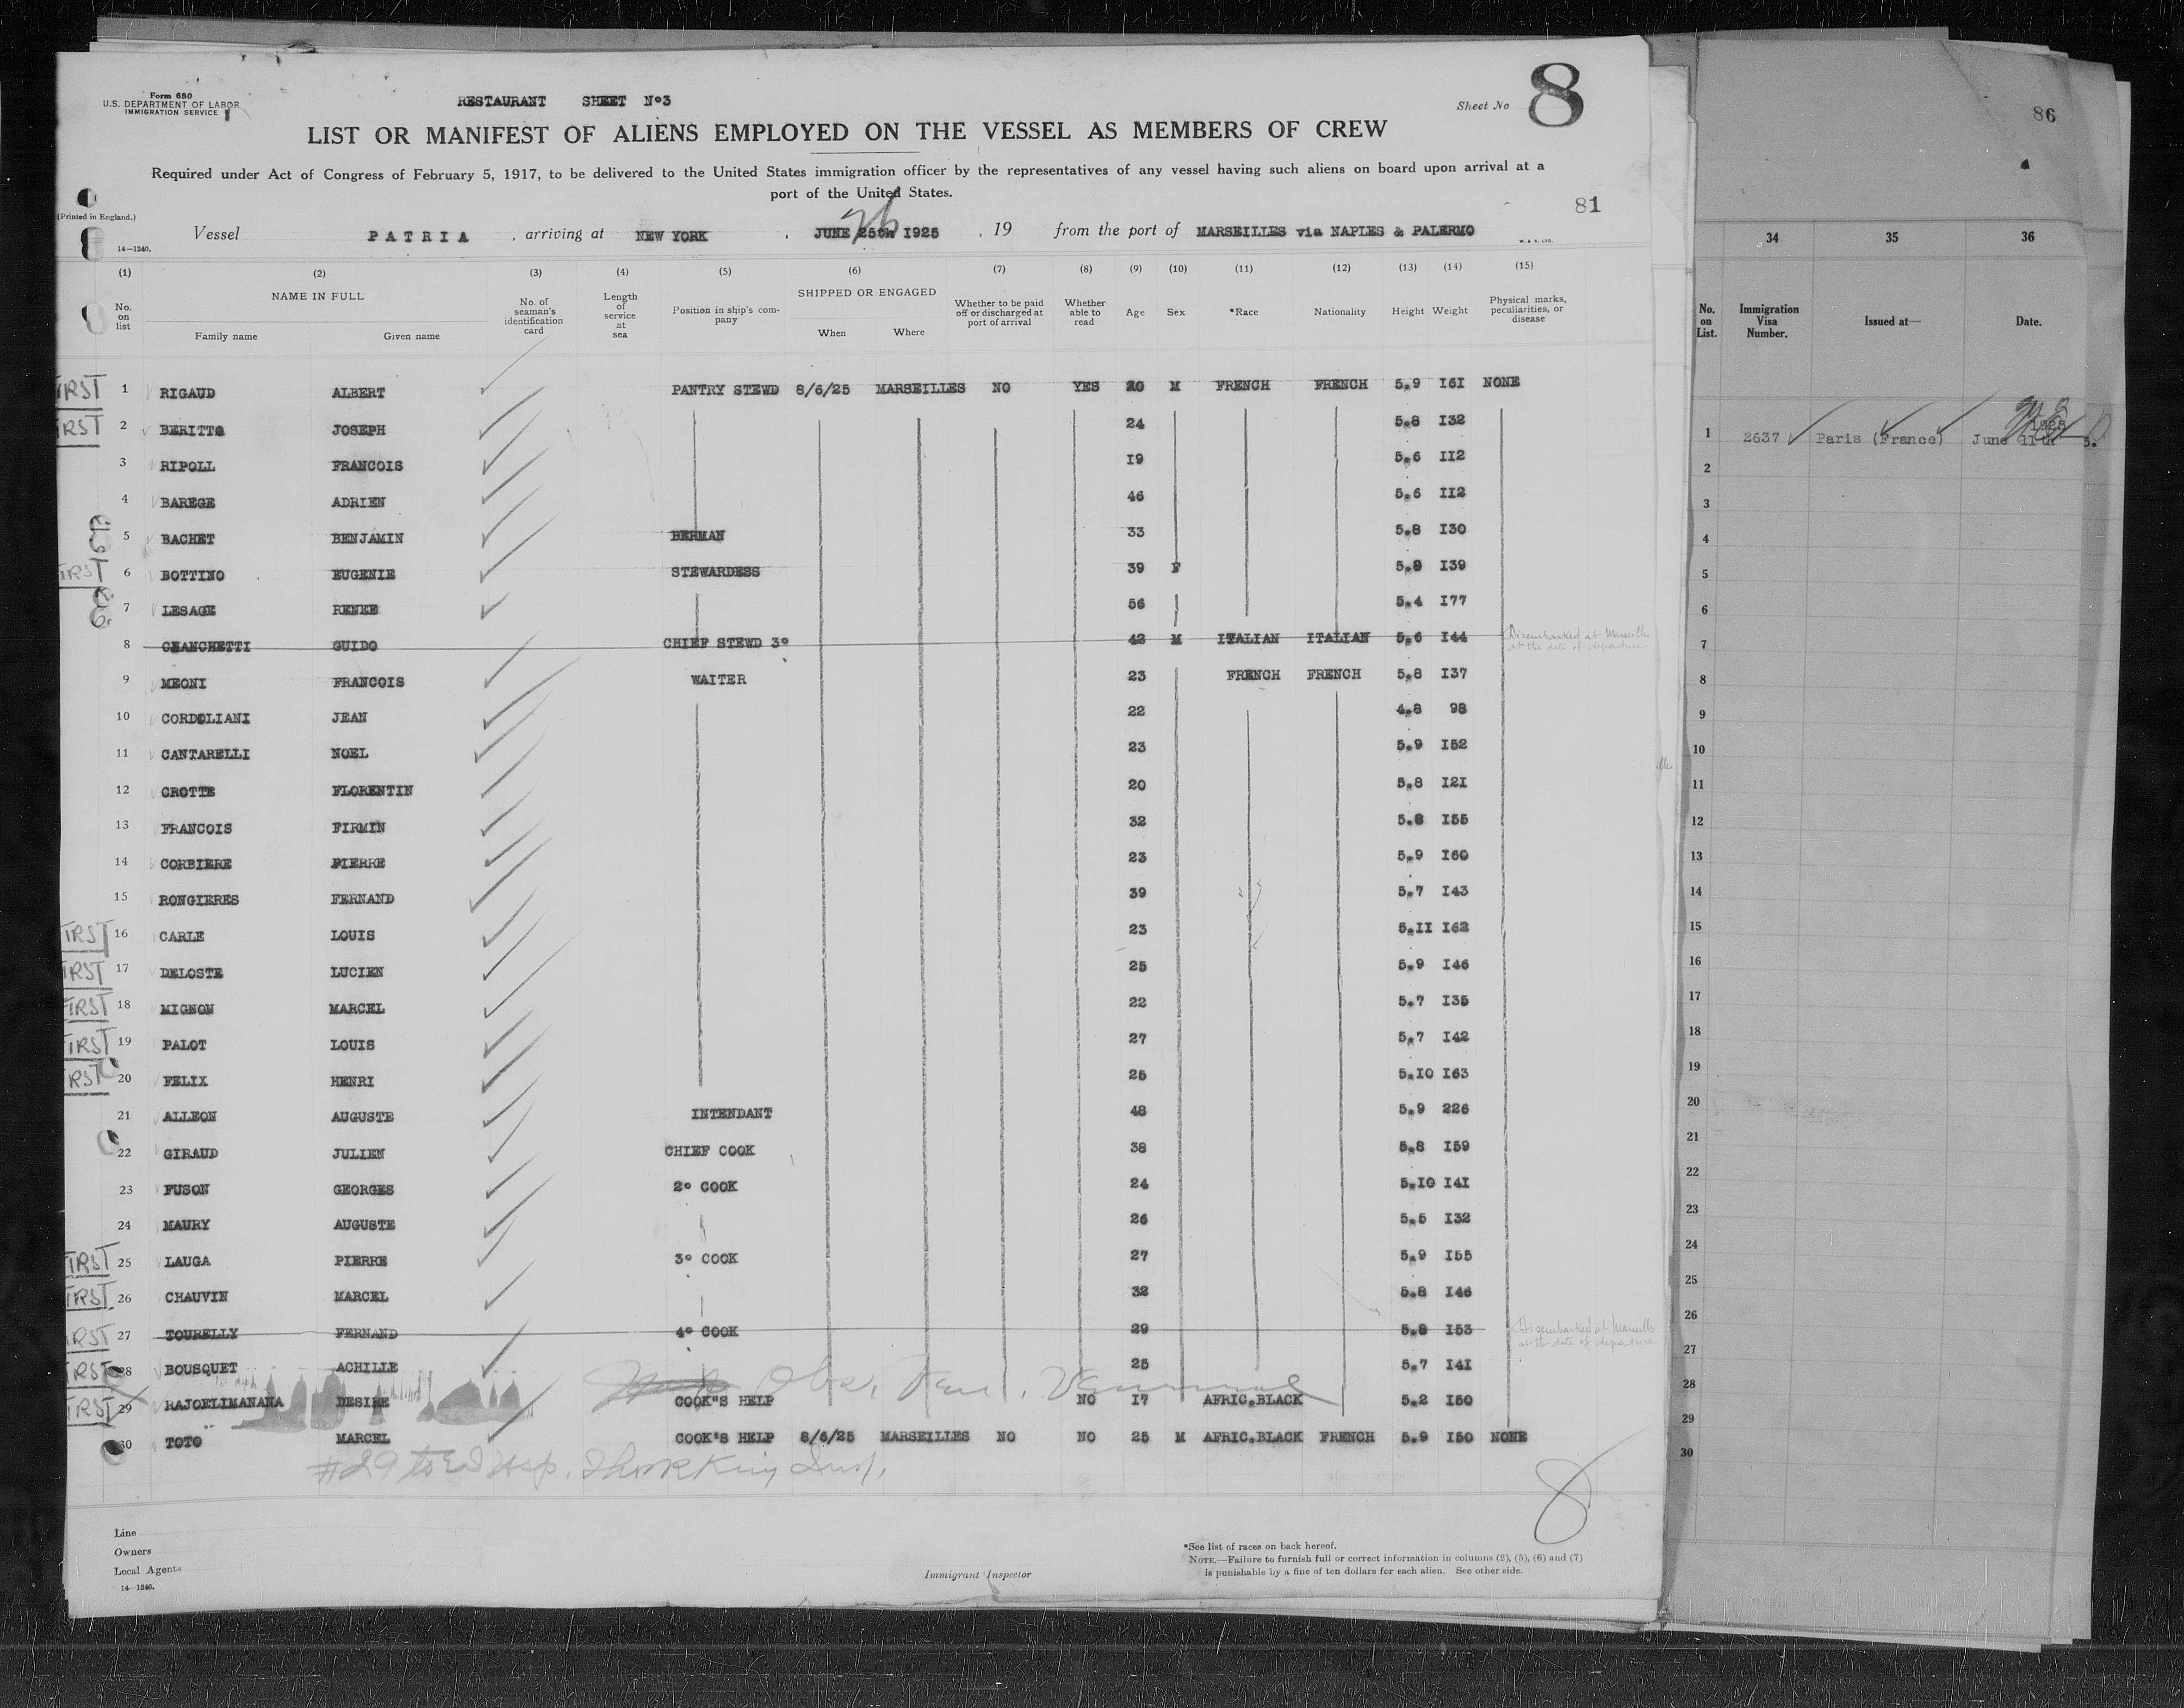 Form 680
U.S. DEPARTMENT OF LABOR
IMMIGRATION SERVICE
RESTAURANT SHEET No3
Sheet No 8
LIST OR MANIFEST OF ALIENS EMPLOYED ON THE VESSEL AS MEMBERS OF CREW
Required under Act of Congress of February 5, 1917, to be delivered to the United States immigration officer by the representatives of any vessel having such aliens on board upon arrival at a
port of the United States.
81
(Printed in England.)
14—1240.
Vessel PATRIA, arriving at NEW YORK, JUNE 25th 1925, 19 from the port of MARSEILLES via NAPLES & PALERMO
W. & S. LTD.
(1) (2) (3) (4) (5) (6) (7) (8) (9) (10) (11) (12) (13) (14) (15)
No. on list
NAME IN FULL
Family name Given name
No. of seaman's identification card
Length of service at sea
Position in ship's company
SHIPPED OR ENGAGED
When Where
Whether to be paid off or discharged at port of arrival
Whether able to read
Age
Sex
*Race
Nationality
Height
Weight
Physical marks, peculiarities, or disease
FIRST 1 RIGAUD ALBERT PANTRY STEWD 8/6/25 MARSEILLES NO YES 20 M FRENCH FRENCH 5.9 I6I NONE
FIRST 2 BERITTO JOSEPH 24 5.8 I32
3 RIPOLL FRANCOIS I9 5.6 II2
4 BAREGE ADRIEN 46 5.6 II2
5 BACHET BENJAMIN BERMAN 33 5.8 I30
FIRST 6 BOTTINO EUGENIE STEWARDESS 39 F 5.9 I39
7 LESAGE RENEE 56 5.4 I77
8 CHANCHETTI GUIDO CHIEF STEWD 3° 42 M ITALIAN ITALIAN 5.6 I44 Disembarked at Marseille
at the date of departure
9 MEONI FRANCOIS WAITER 23 FRENCH FRENCH 5.8 I37
10 CORDOLIANI JEAN 22 4.8 98
11 CANTARELLI NOEL 23 5.9 I52
12 CROTTE FLORENTIN 20 5.8 I2I
13 FRANCOIS FIRMIN 32 5.8 I55
14 CORBIERE PIERRE 23 5.9 I60
15 RONGIERES FERNAND 39 5.7 I43
FIRST 16 CARLE LOUIS 23 5.II I62
FIRST 17 DELOSTE LUCIEN 25 5.9 I46
FIRST 18 MIGNON MARCEL 22 5.7 I35
FIRST 19 PALOT LOUIS 27 5.7 I42
FIRST 20 FELIX HENRI 25 5.I0 I63
21 ALLEON AUGUSTE INTENDANT 48 5.9 226
22 GIRAUD JULIEN CHIEF COOK 38 5.8 I59
23 FUSON GEORGES 2° COOK 24 5.I0 I4I
24 MAURY AUGUSTE 26 5.5 I32
FIRST 25 LAUGA PIERRE 3° COOK 27 5.9 I55
FIRST 26 CHAUVIN MARCEL 32 5.8 I46
FIRST 27 TOURELLY FERNAND 4° COOK 29 5.8 I53 Disembarked at Marseille
at the date of departure
FIRST 28 BOUSQUET ACHILLE 25 5.7 I4I
FIRST 29 RAJOELIMANANA DESIRE COOK"S HELP NO I7 AFRIC.BLACK 5.2 I50
30 TOTO MARCEL COOK'S HELP 8/6/25 MARSEILLES NO NO 25 M AFRIC.BLACK FRENCH 5.9 I50 NONE
#29 to
8
Line
Owners
Local Agents
14—1240.
Immigrant Inspector
*See list of races on back hereof.
NOTE.—Failure to furnish full or correct information in columns (2), (5), (6) and (7)
is punishable by a fine of ten dollars for each alien. See other side.
86
34 35 36
No. on List.
Immigration Visa Number.
Issued at—
Date.
1 2637 Paris (France) June 11
2
3
4
5
6
7
8
9
10
11
12
13
14
15
16
17
18
19
20
21
22
23
24
25
26
27
28
29
30